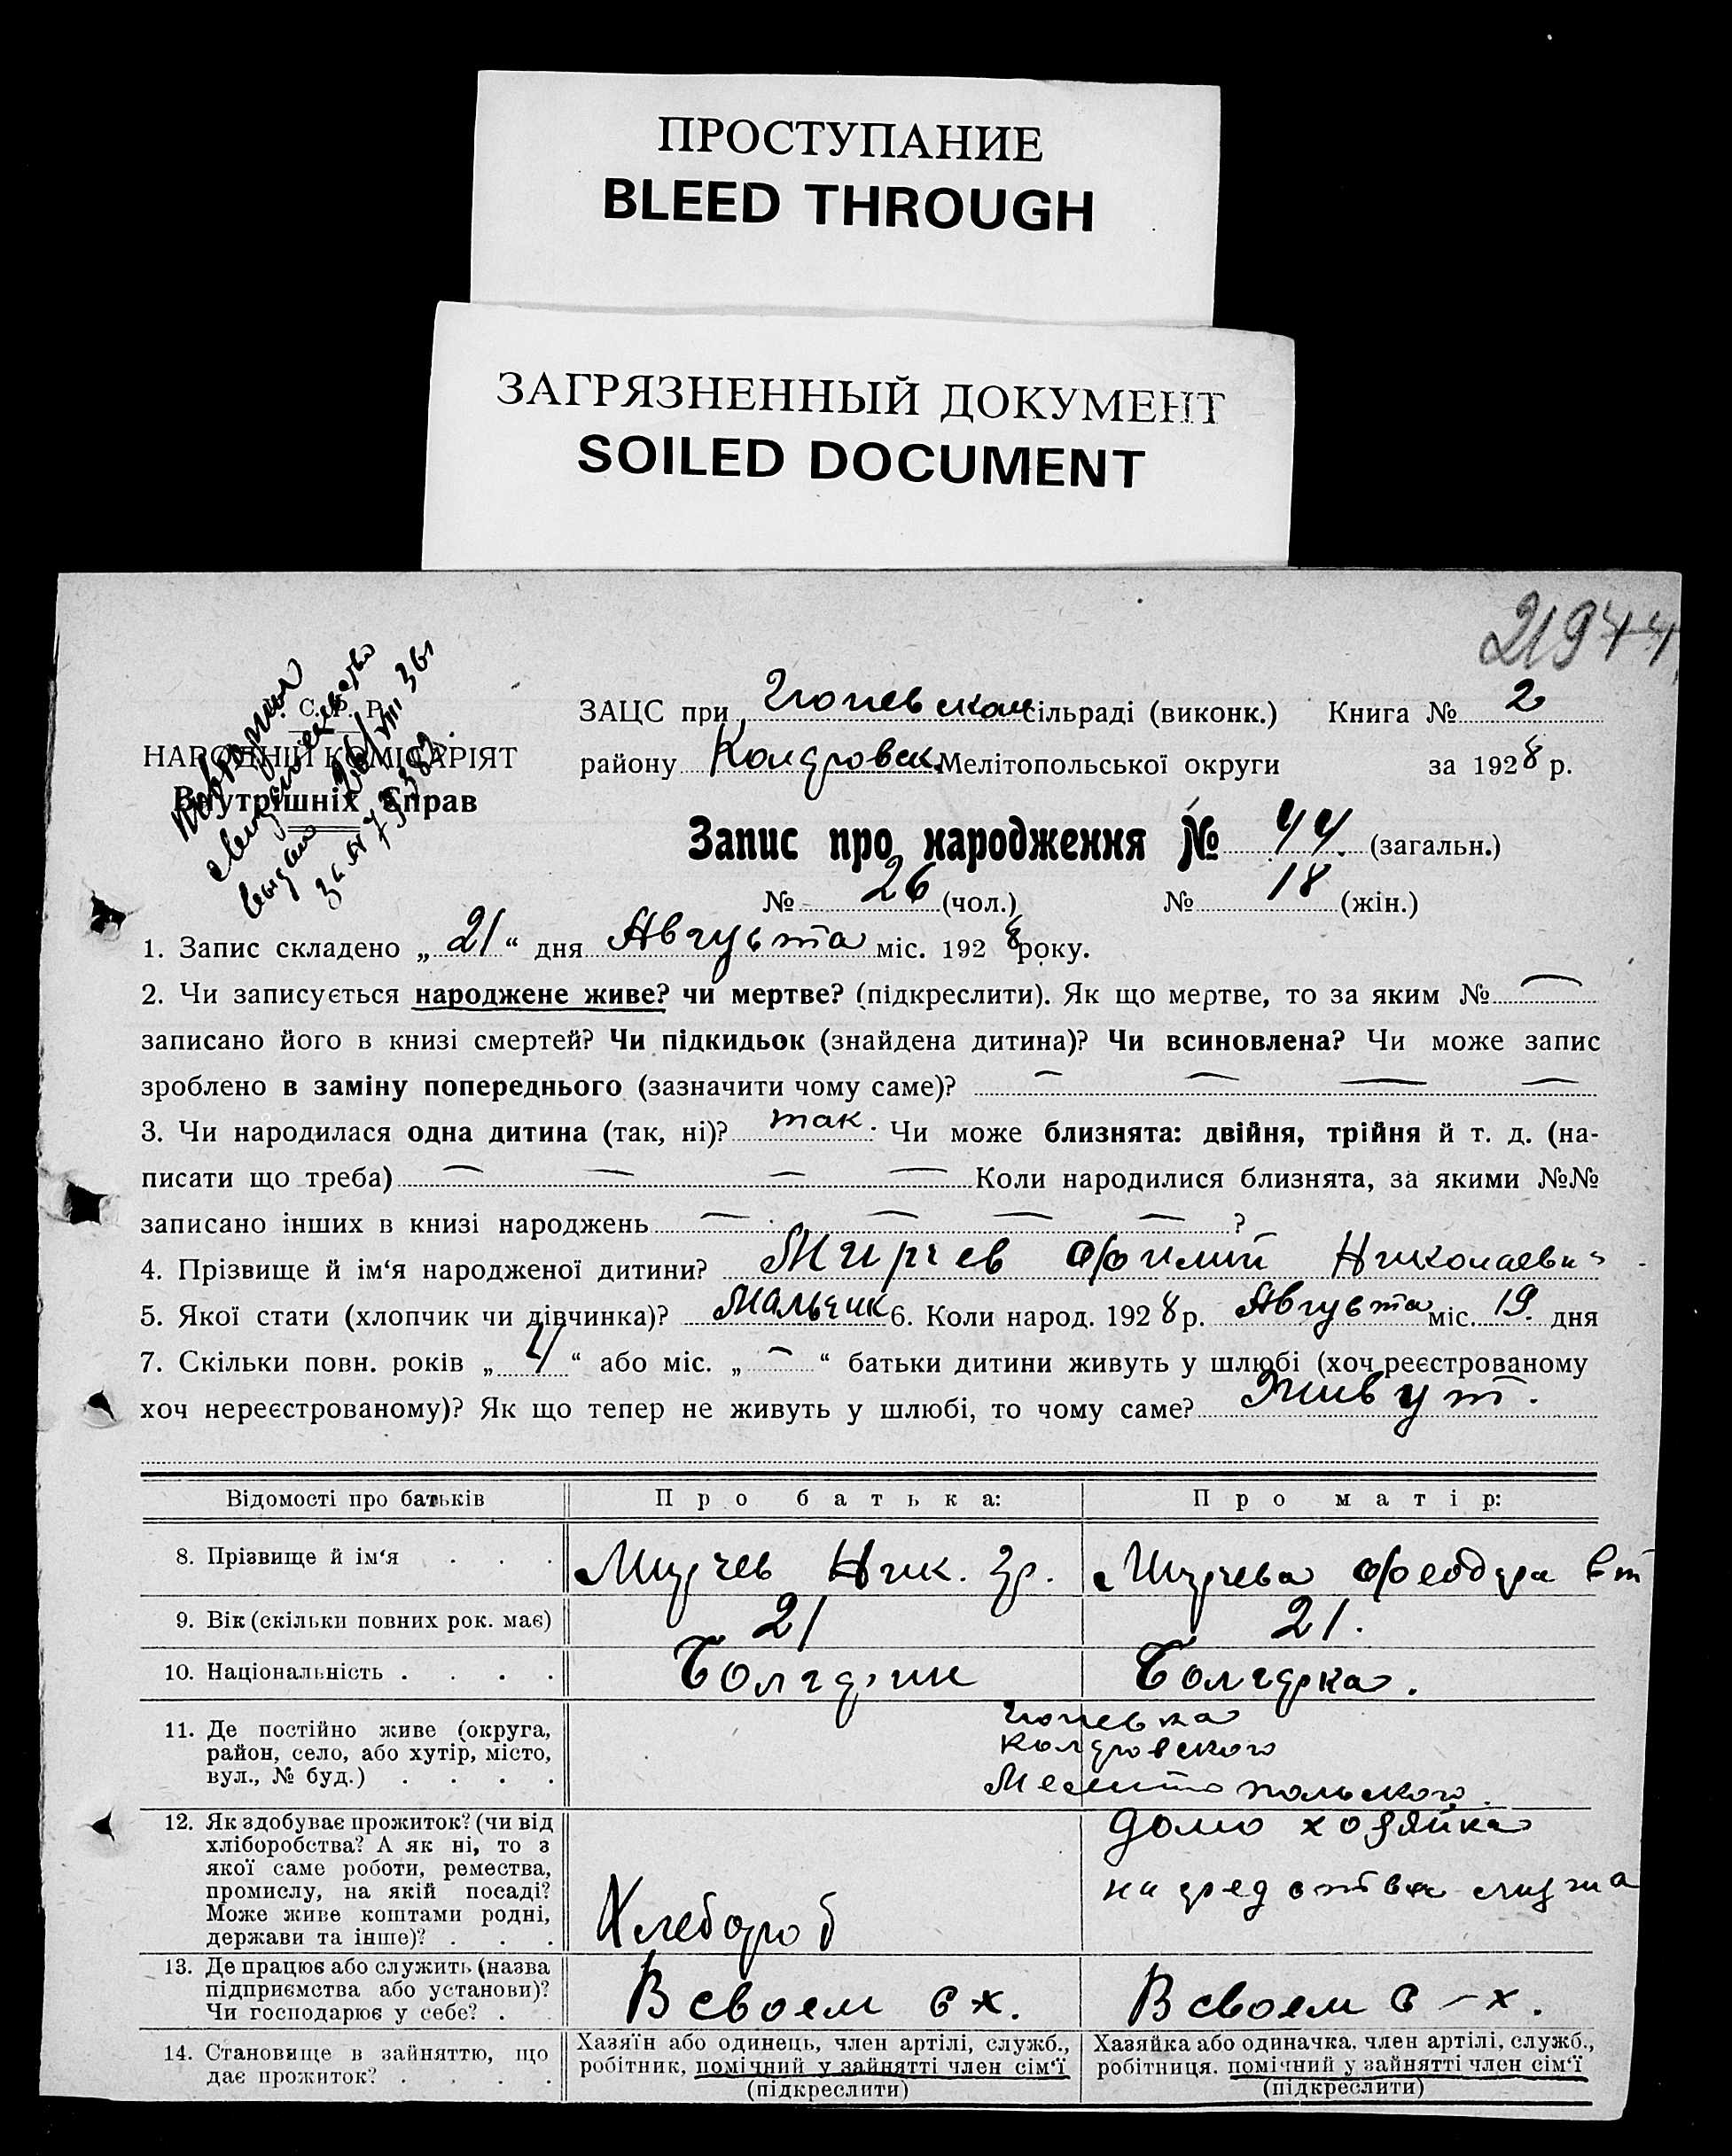 ПРОСТУПАНИЕ
BLEED THROUGH
ЗАГРЯЗНЕННЫЙ ДОКУМЕНТ
SOILED DOCUMENT
С. Р. Р.
НАРОДНІЙ КОМІСАРІЯТ
Внутрішніх Справ
свидетельство
выдано
ЗАЦС при сільраді (виконк.) Книга № 2
району Мелітопольської округи за 1928 р.
Запис про народження № 44. (загальн.)
№ 26 (чол.) № 18 (жін.)
1. Запис складено „ 21 “ дня Августа міс. 192 8 року.
2. Чи записується народжене живе? чи мертве? (підкреслити). Як що мертве, то за яким № —
записано його в книзі смертей? Чи підкидьок (знайдена дитина)? Чи всиновлена? Чи може запис
зроблено в заміну попереднього (зазначити чому саме)? — — — —
3. Чи народилася одна дитина (так, ні)? так. Чи може близнята: двійня, трійня й т. д. (на-
писати що треба) — — — — Коли народилися близнята, за якими №№
записано інших в книзі народжень — — — — ?
4. Прізвище й ім‘я народженої дитини? Мирчев
5. Якої стати (хлопчик чи дівчинка)? Мальчик 6. Коли народ. 192 8 р. Августа міс. 19. дня
7. Скільки повн. років „ 4 “ або міс. „ — “ батьки дитини живуть у шлюбі (хоч реєстрованому
хоч нереєстрованому)? Як що тепер не живуть у шлюбі, то чому саме? Живут.
Відомості про батьків Про батька: Про матір:
8. Прізвище й ім‘я . . . Мирчев Ник. Гр. Мирчева Феодора
9. Вік (скільки повних рок. має) 21 21.
10. Національність . . . . Болгарин Болгарка.
11. Де постійно живе (округа,
район, село, або хутір, місто,
вул., № буд.) . . . .
Мелитопольского.
12. Як здобуває прожиток? (чи від
хліборобства? А як ні, то з
якої саме роботи, ремества,
промислу, на якій посаді?
Може живе коштами родні,
держави та інше)? . . .
Хлебороб
домо хозяйка
на средства мужа
13. Де працює або служить (назва
підприємства або установи)?
Чи господарює у себе? .
В своем с х. В своем с-х.
14. Становище в зайняттю, що
дає прожиток? . . . .
Хазяїн або одинець, член артілі, служб.,
робітник, помічний у зайнятті член сім‘ї
(підкреслити)
Хазяйка або одиначка, член артілі, служб.,
робітниця, помічний у зайнятті член сім‘ї
(підкреслити)